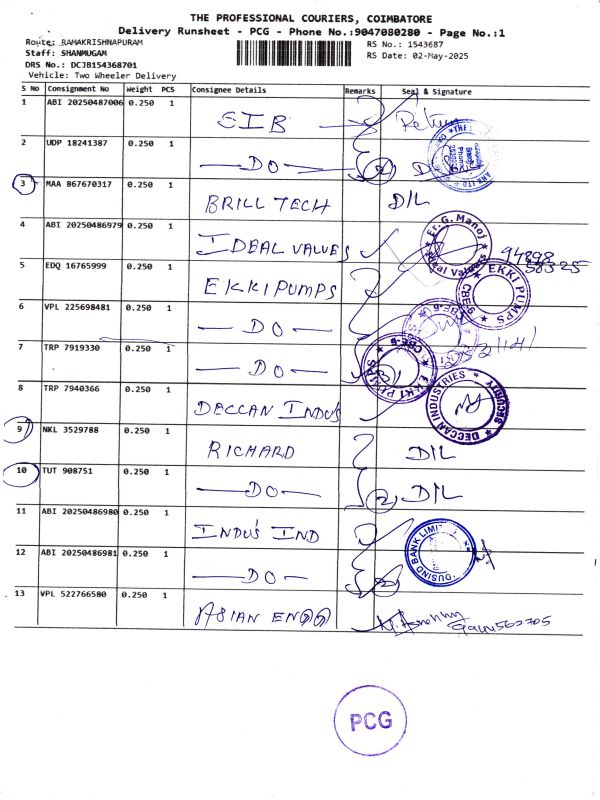 THE PROFESSIONAL COURIERS, COIMBATORE
Delivery Runsheet - PCG - Phone No.:9047080280 - Page No.:1
Route: RAMAKRISHNAPURAM
RS No.: 1543687
Staff: SHANMUGAM
RS Date: 02-May-2025
DRS No.: DCJB154368701
Vehicle: Two Wheeler Delivery
S No Consignment No Weight PCS Consignee Details Remarks Seal & Signature
1 ABI 20250487006 0.250 1 SIB Return
2 UDP 18241387 0.250 1 DO 2
3 MAA 867670317 0.250 1 BRILL TECH D/L
4 ABI 20250486979 0.250 1 IDEAL VALVES Er. G. Manoj Ideal Valves 94898
5 EDQ 16765999 0.250 1 EKKI PUMPS EKKI PUMPS CBE-6
6 VPL 225698481 0.250 1 DO CBE-6
7 TRP 7919330 0.250 1 DO 3 EKKI PUMPS CBE-6
8 TRP 7940366 0.250 1 DECCAN INDUS DECCAN INDUSTRIES SECURITY
9 NKL 3529788 0.250 1 RICHARD D/L
10 TUT 908751 0.250 1 DO 2 D/L
11 ABI 20250486980 0.250 1 INDUS IND INDUSIND BANK LIMITED
12 ABI 20250486981 0.250 1 DO 2
13 VPL 522766580 0.250 1 ASIAN ENGG
PCG